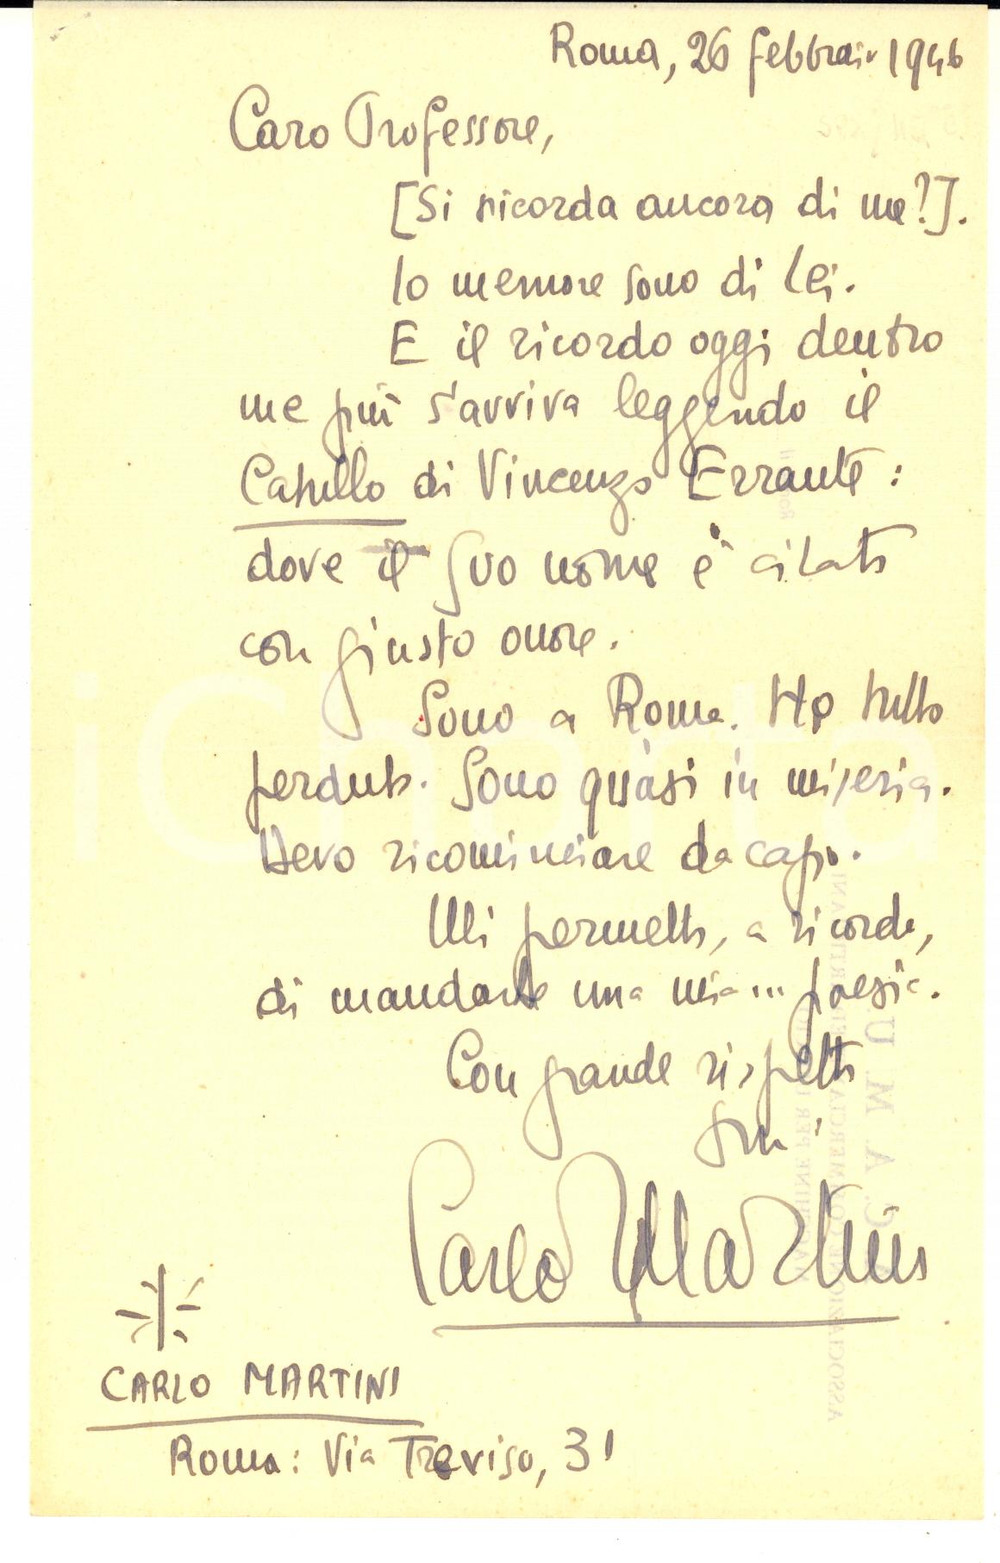 Roma, 26 febbraio 1946
Caro Professore,
[Si ricorda ancora di me?].
Io memore sono di Lei.
E il ricordo oggi dentro
me più s'avviva leggendo il
Catullo di Vincenzo Errante:
dove il Suo nome è citato
con giusto onore.
Sono a Roma. Ho tutto
perduto. Sono quasi in miseria.
Devo ricominciare da capo.
Mi permetto, a ricordo,
di mandarle una mia... poesia.
Con grande rispetto
Suo
Carlo Martini
CARLO MARTINI
Roma: Via Treviso, 31
iCharta
C. A. M. U.